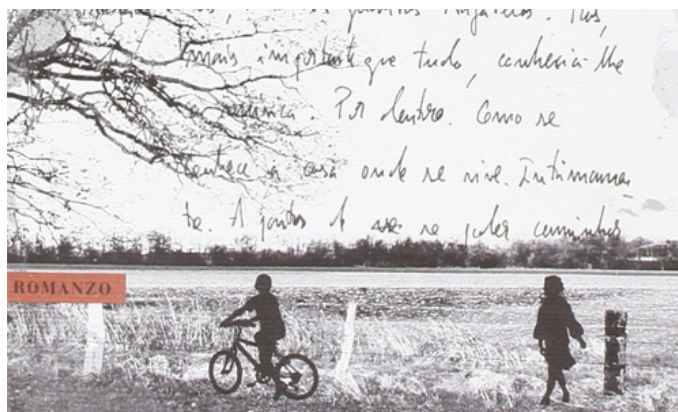 mais importante que tudo, conhecia-lhe
a música. Por dentro. Como se
conhece a casa onde se vive. Intimamen
te. A ponto de se poder caminhar
ROMANZO